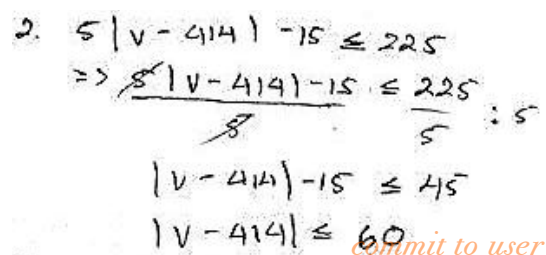 2. 5|v - 414| - 15 ≤ 225
=> 5|v - 414| - 15 ≤ 225 : 5
5 5
|v - 414| - 15 ≤ 45
|v - 414| ≤ 60
commit to user